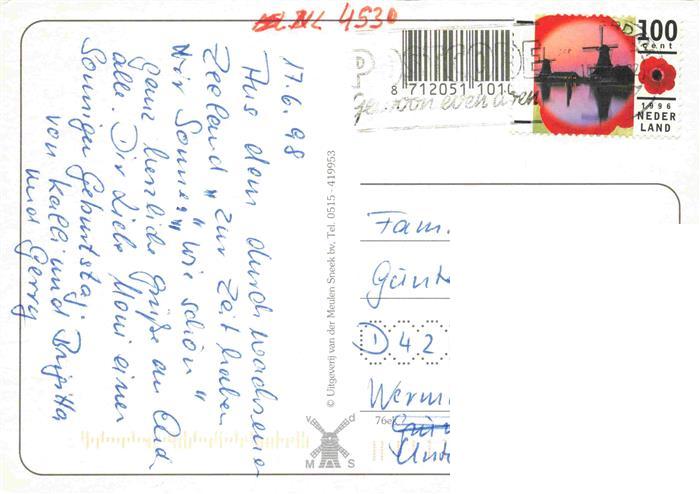 NL 4530
17.6.98
Aus dem durchwachsenen
Zeeland „ zur Zeit haben
wir Sonne" „wie schön"
Ganz herzliche Grüße an Euch
alle. Dir liebe Moni einen
Sonnigen Geburtstag.
von Kalli und Brigitta
und Gerry
© Uitgeverij van der Meulen Sneek bv, Tel. 0515 - 419953
8 712051 101
gewoon even
100
cent
1996
NEDER
LAND
Fam.
Günt
D 42
Werm
Unt
76e
v d
M S